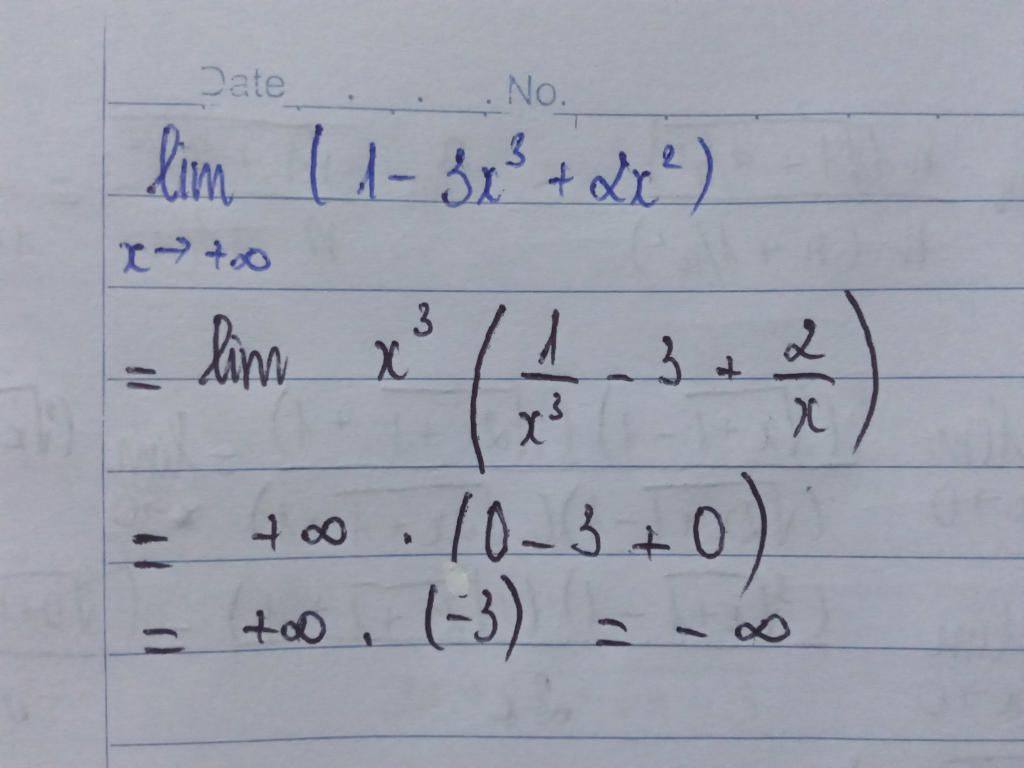 Date . . . No.
lim (1 - 3x³ + 2x²)
x → +∞
= lim x³ (1/x³ - 3 + 2/x)
= +∞ . (0 - 3 + 0)
= +∞ . (-3) = - ∞